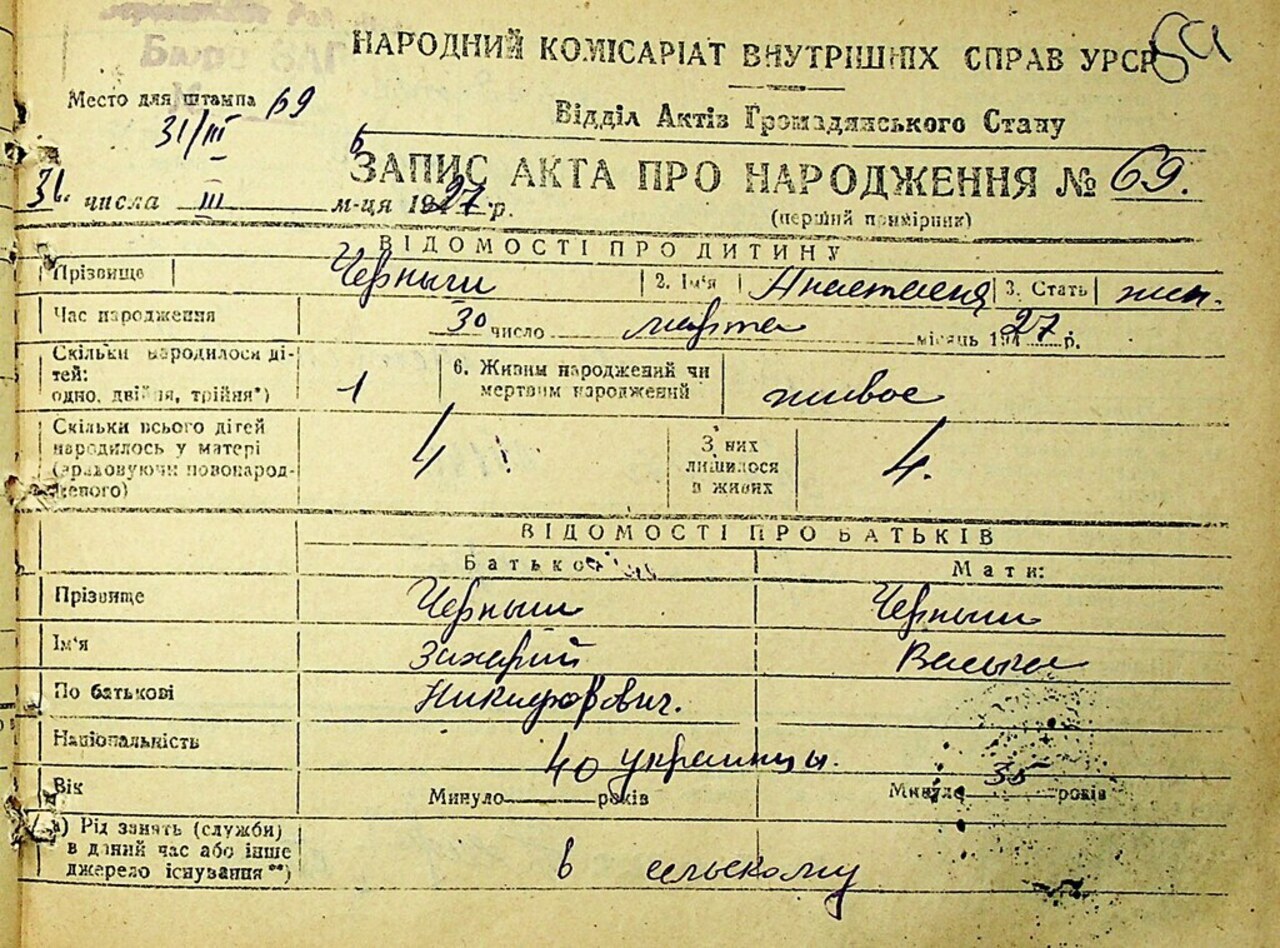 Бюро ЗАГ
НАРОДНИЙ КОМІСАРІАТ ВНУТРІШНІХ СПРАВ УРСР
Место для штампа 69
31/III
Відділ Актів Громадянського Стану
ЗАПИС АКТА ПРО НАРОДЖЕННЯ № 69.
31. числа III м-ця 1927 р.
(перший примірник)
ВІДОМОСТІ ПРО ДИТИНУ
Прізвище Черныш 2. Ім'я Анастасия 3. Стать жен.
Час народження 30 число марта місяць 1927 р.
Скільки народилося ді-
тей:
одно, двійня, трійня*) 1
6. Живим народжений чи
мертвим народжений живое
Скільки всього дітей
народилось у матері
(враховуючи новонарод-
женого) 4
З них
лишилося
в живих 4.
ВІДОМОСТІ ПРО БАТЬКІВ
Батько: Мати:
Прізвище Черныш Черныш
Ім'я Захарий
По батькові Никифорович.
Національність украинцы.
Вік Минуло 40 років Минуло 35 років
а) Рід занять (служби)
в даний час або інше
джерело існування**)
в сельскому